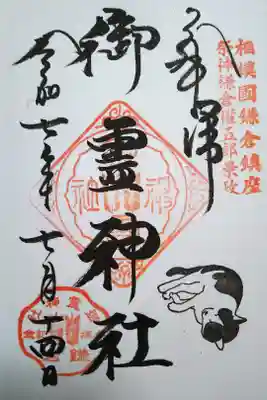 相模國鎌倉鎮座
祭神鎌倉権五郎景政
奉拝
御霊神社
令和七年七月十四日